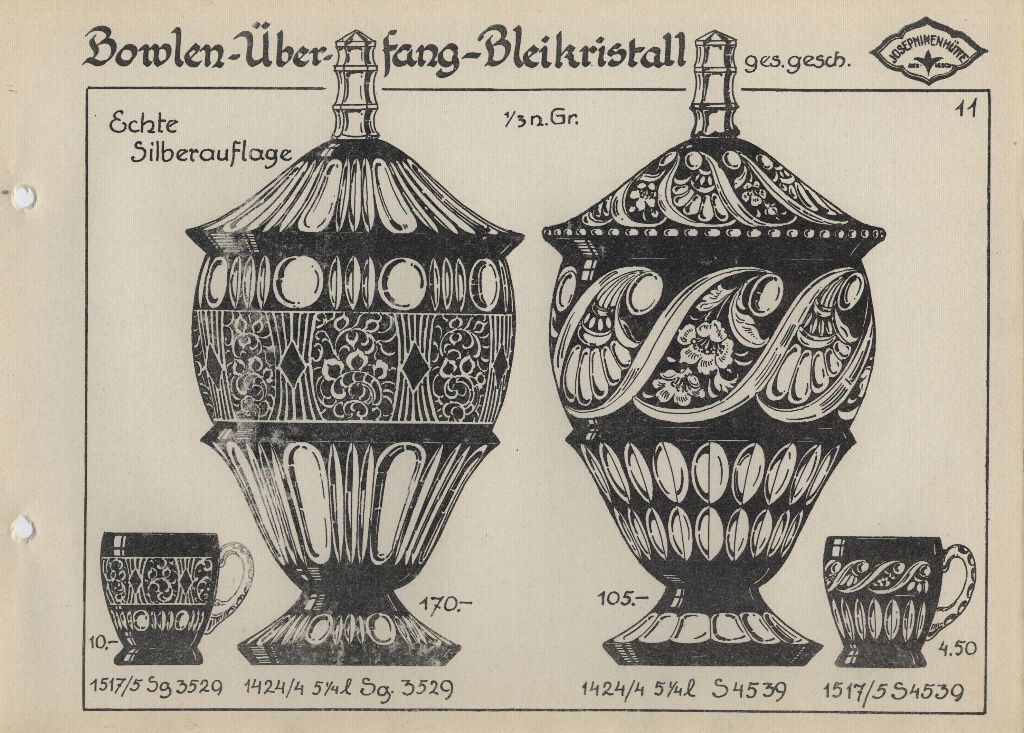 Bowlen-Über-fang-Bleikristall ges. gesch.
JOSEPHINENHÜTTE
11
Echte
Silberauflage
1/3 n. Gr.
170.-
105.-
10.-
4.50
1517/5 Sg 3529
1424/4 5¼l Sg. 3529
1424/4 5¼l S4539
1517/5 S4539